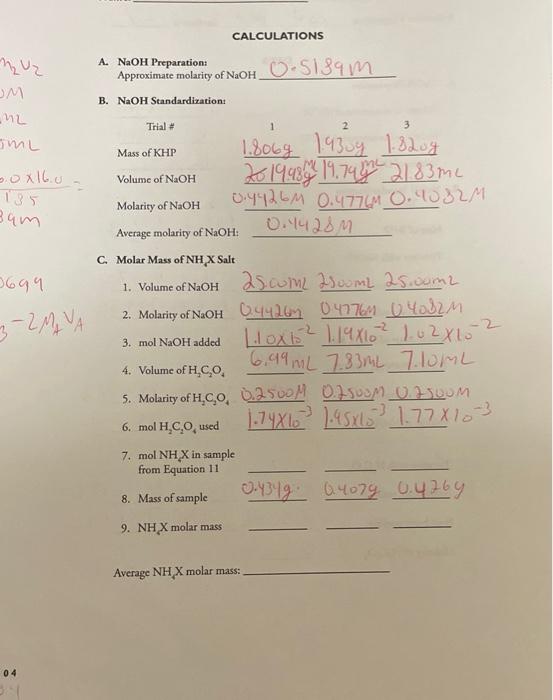 CALCULATIONS
A. NaOH Preparation:
Approximate molarity of NaOH 0.5189M
B. NaOH Standardization:
Trial # 1 2 3
Mass of KHP 1.806g 1.930g 1.820g
Volume of NaOH 19.98 mL 19.79 mL 21.83mL
Molarity of NaOH 0.4426M 0.4776M 0.4082M
Average molarity of NaOH: 0.4428M
C. Molar Mass of NH₄X Salt
1. Volume of NaOH 25.00mL 25.00mL 25.00mL
2. Molarity of NaOH 0.4426M 0.4776M 0.4082M
3. mol NaOH added 1.10x10⁻² 1.19x10⁻² 1.02x10⁻²
4. Volume of H₂C₂O₄ 6.99mL 7.83mL 7.10mL
5. Molarity of H₂C₂O₄ 0.2500M 0.2500M 0.2500M
6. mol H₂C₂O₄ used 1.74x10⁻³ 1.95x10⁻³ 1.77x10⁻³
7. mol NH₄X in sample
from Equation 11
8. Mass of sample 0.434g 0.407g 0.426g
9. NH₄X molar mass
Average NH₄X molar mass:
04